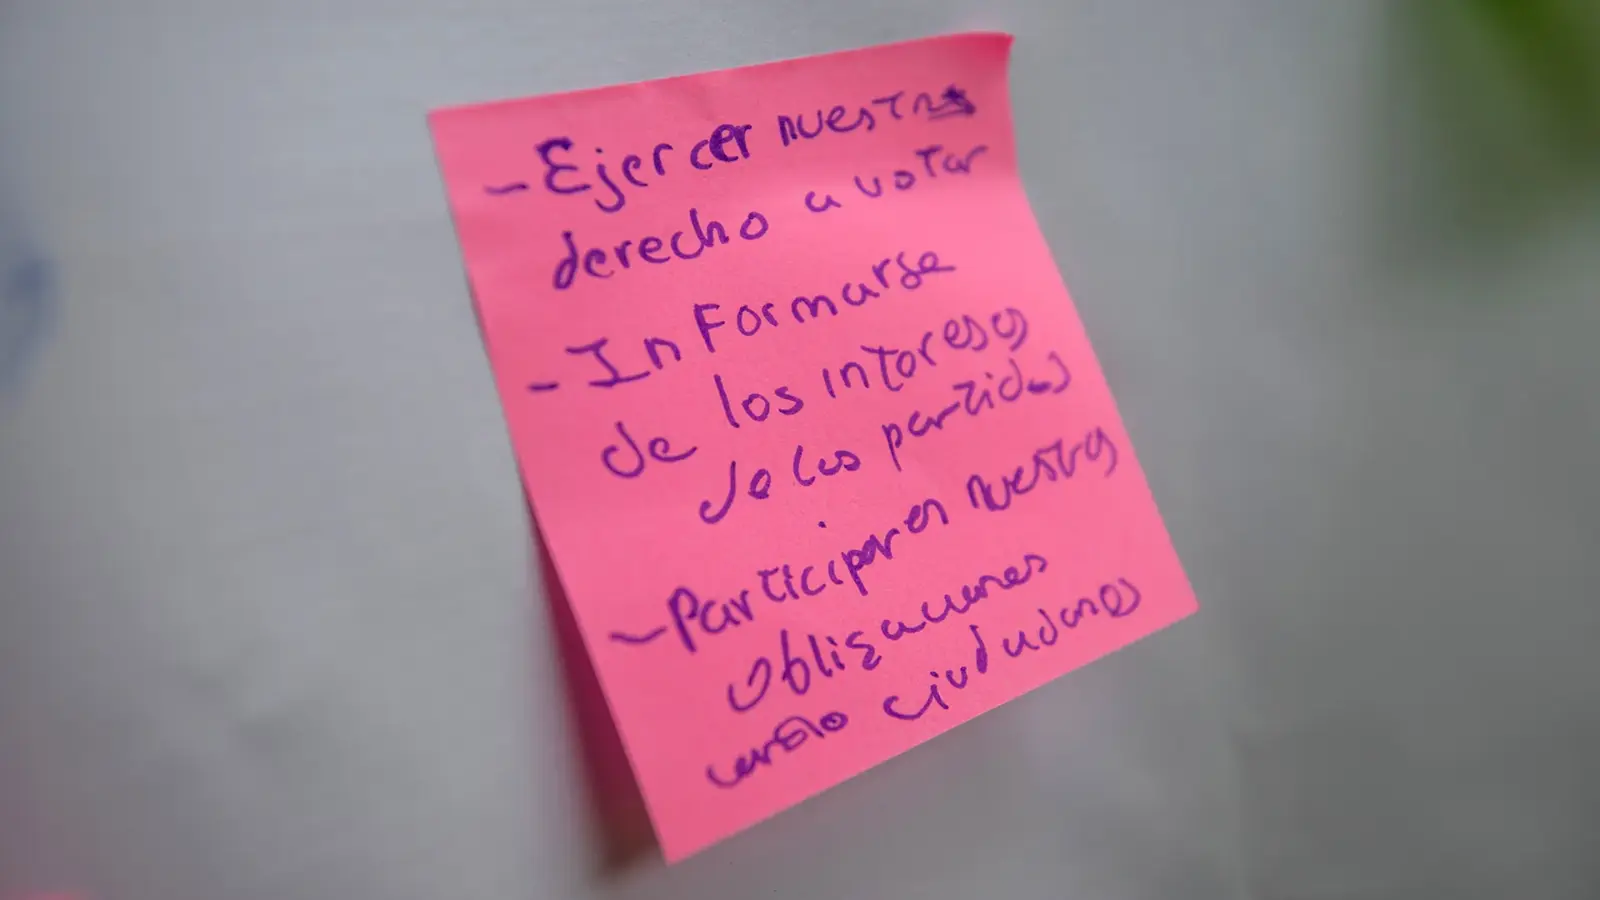 - Ejercer nuestro
derecho a votar
- Informarse
de los intereses
de los partidos
- Participar en nuestras
obligaciones
ciudadanos